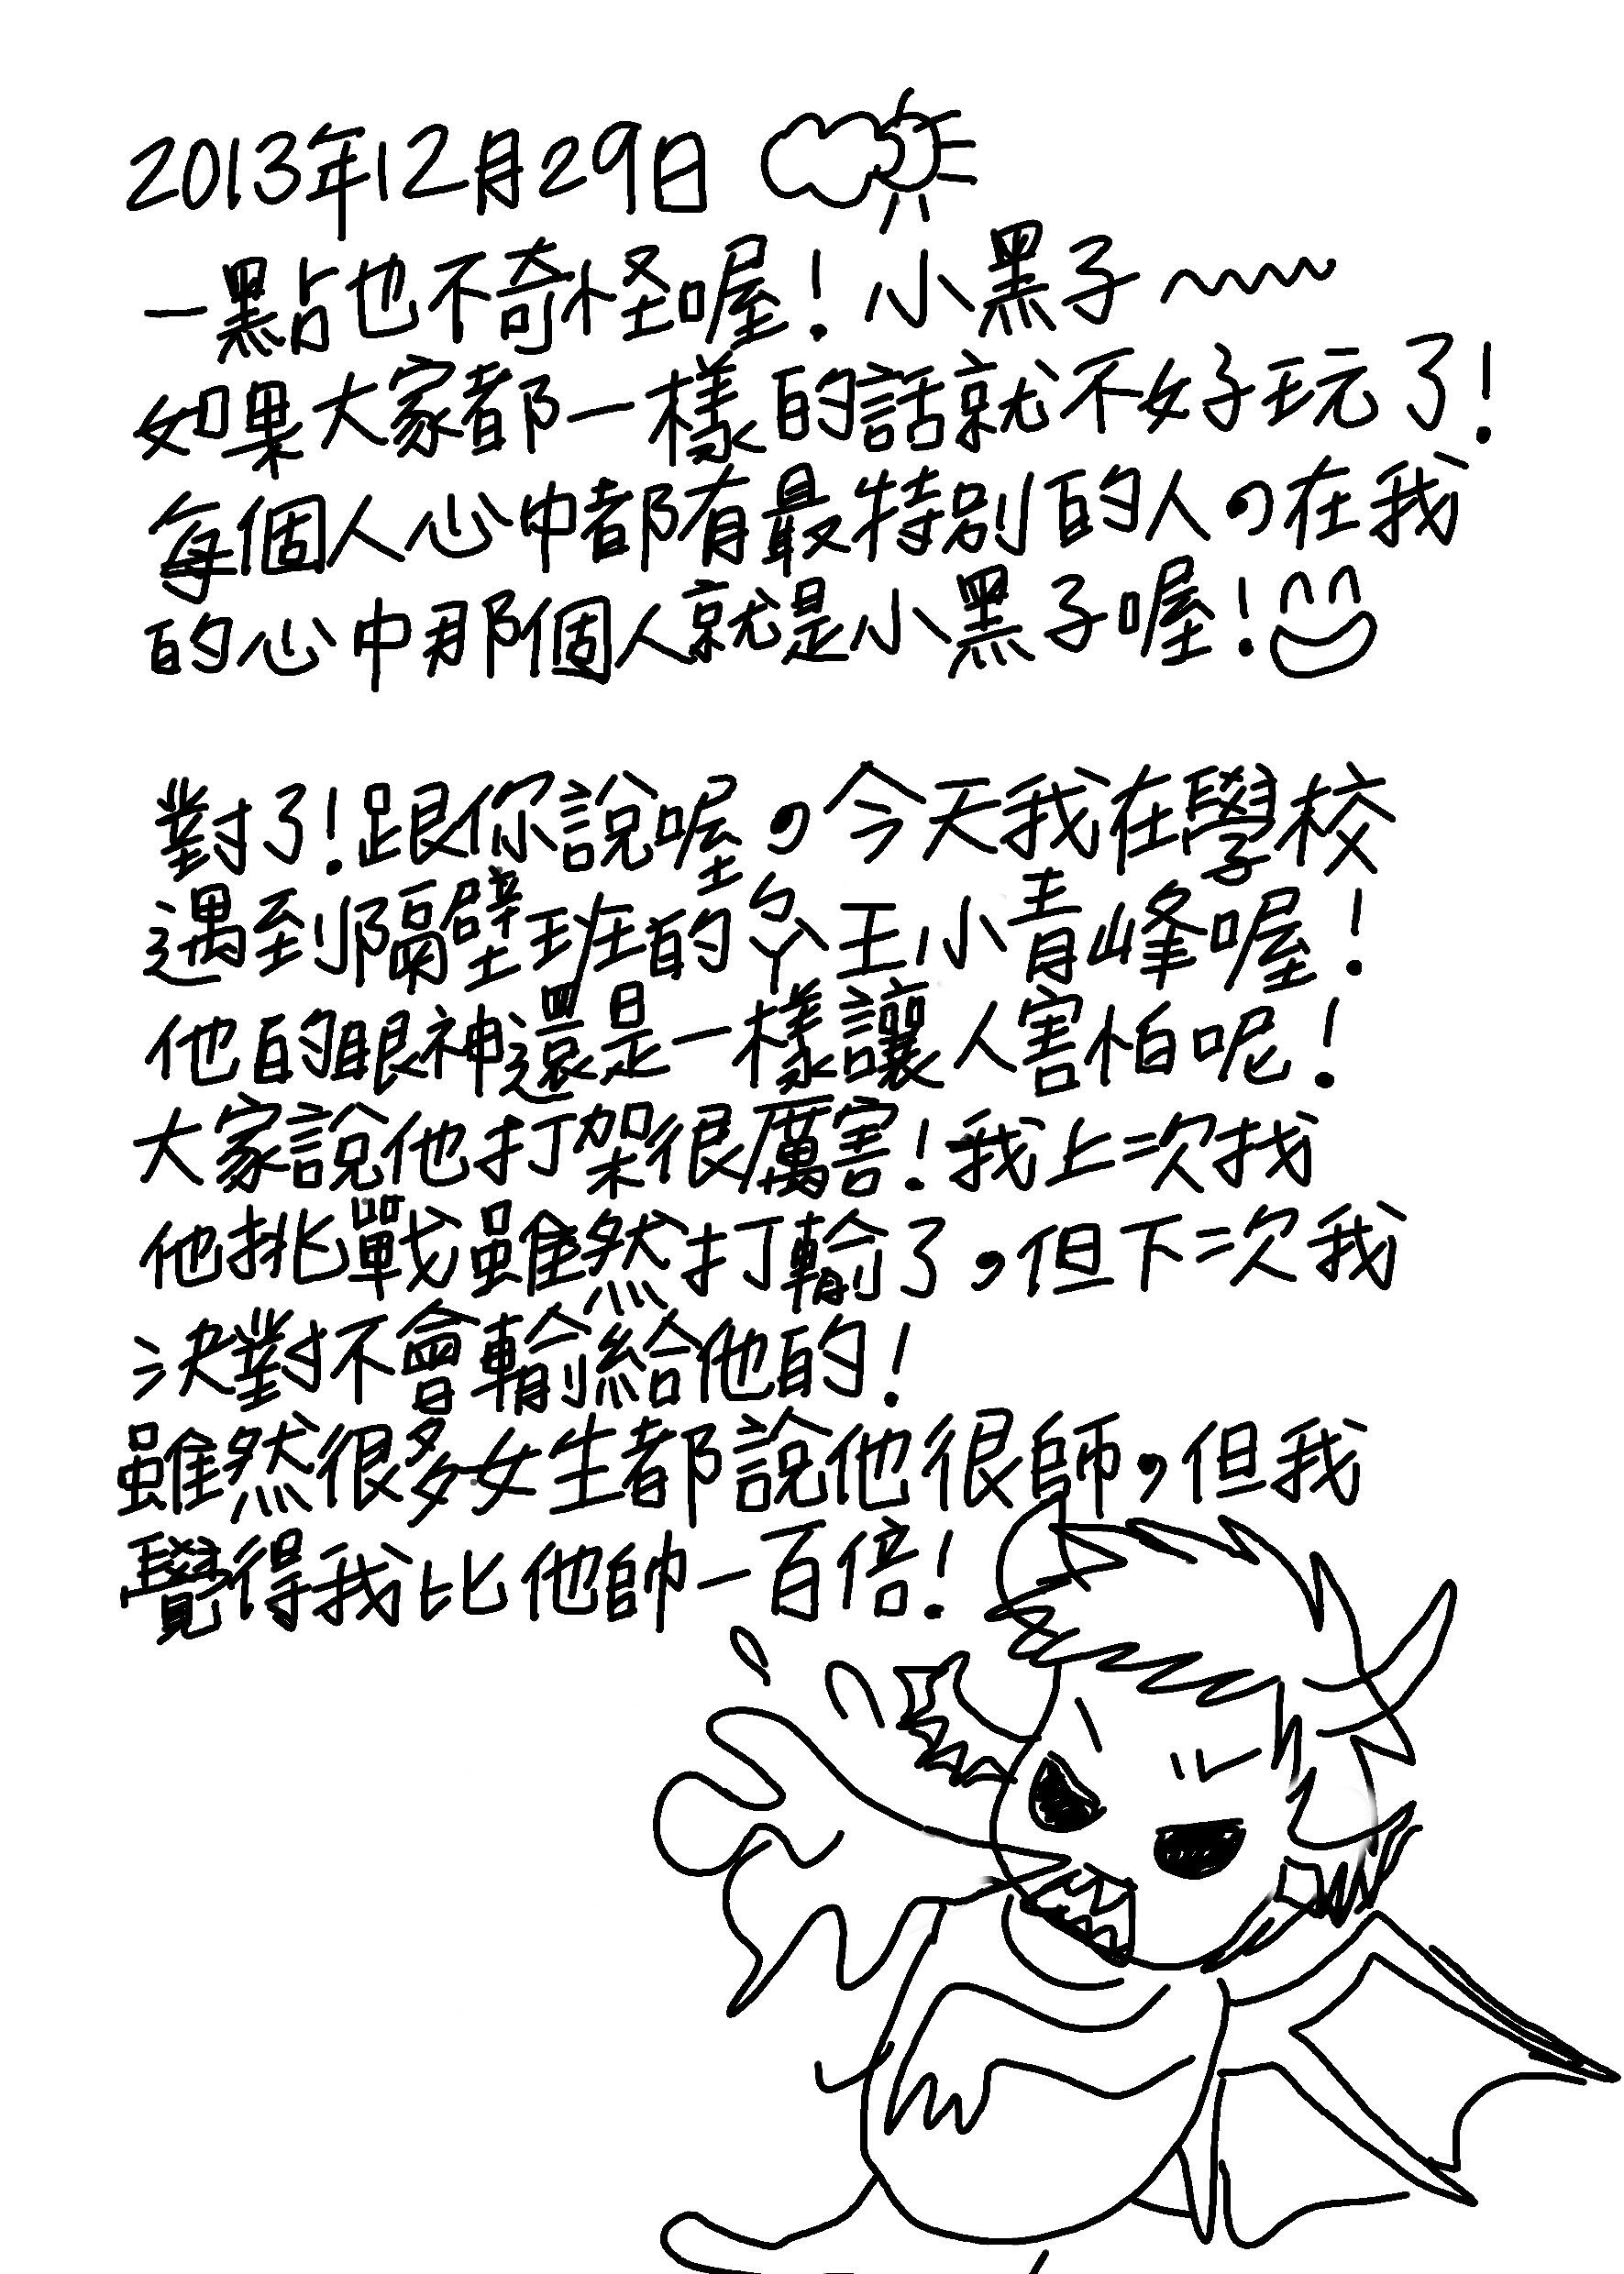 2013年12月29日
一點也不奇怪喔!小黑子~~~
如果大家都一樣的話就不好玩了!
每個人心中都有最特別的人,在我
的心中那個人就是小黑子喔!
對了!跟你說喔,今天我在學校
遇到隔壁班的ㄅㄚ王小青峰喔!
他的眼神還是一樣讓人害怕呢!
大家說他打架很厲害!我上次找
他挑戰雖然打輸了,但下次我
決對不會輸給他的!
雖然很多女生都說他很師,但我
覺得我比他帥一百倍!